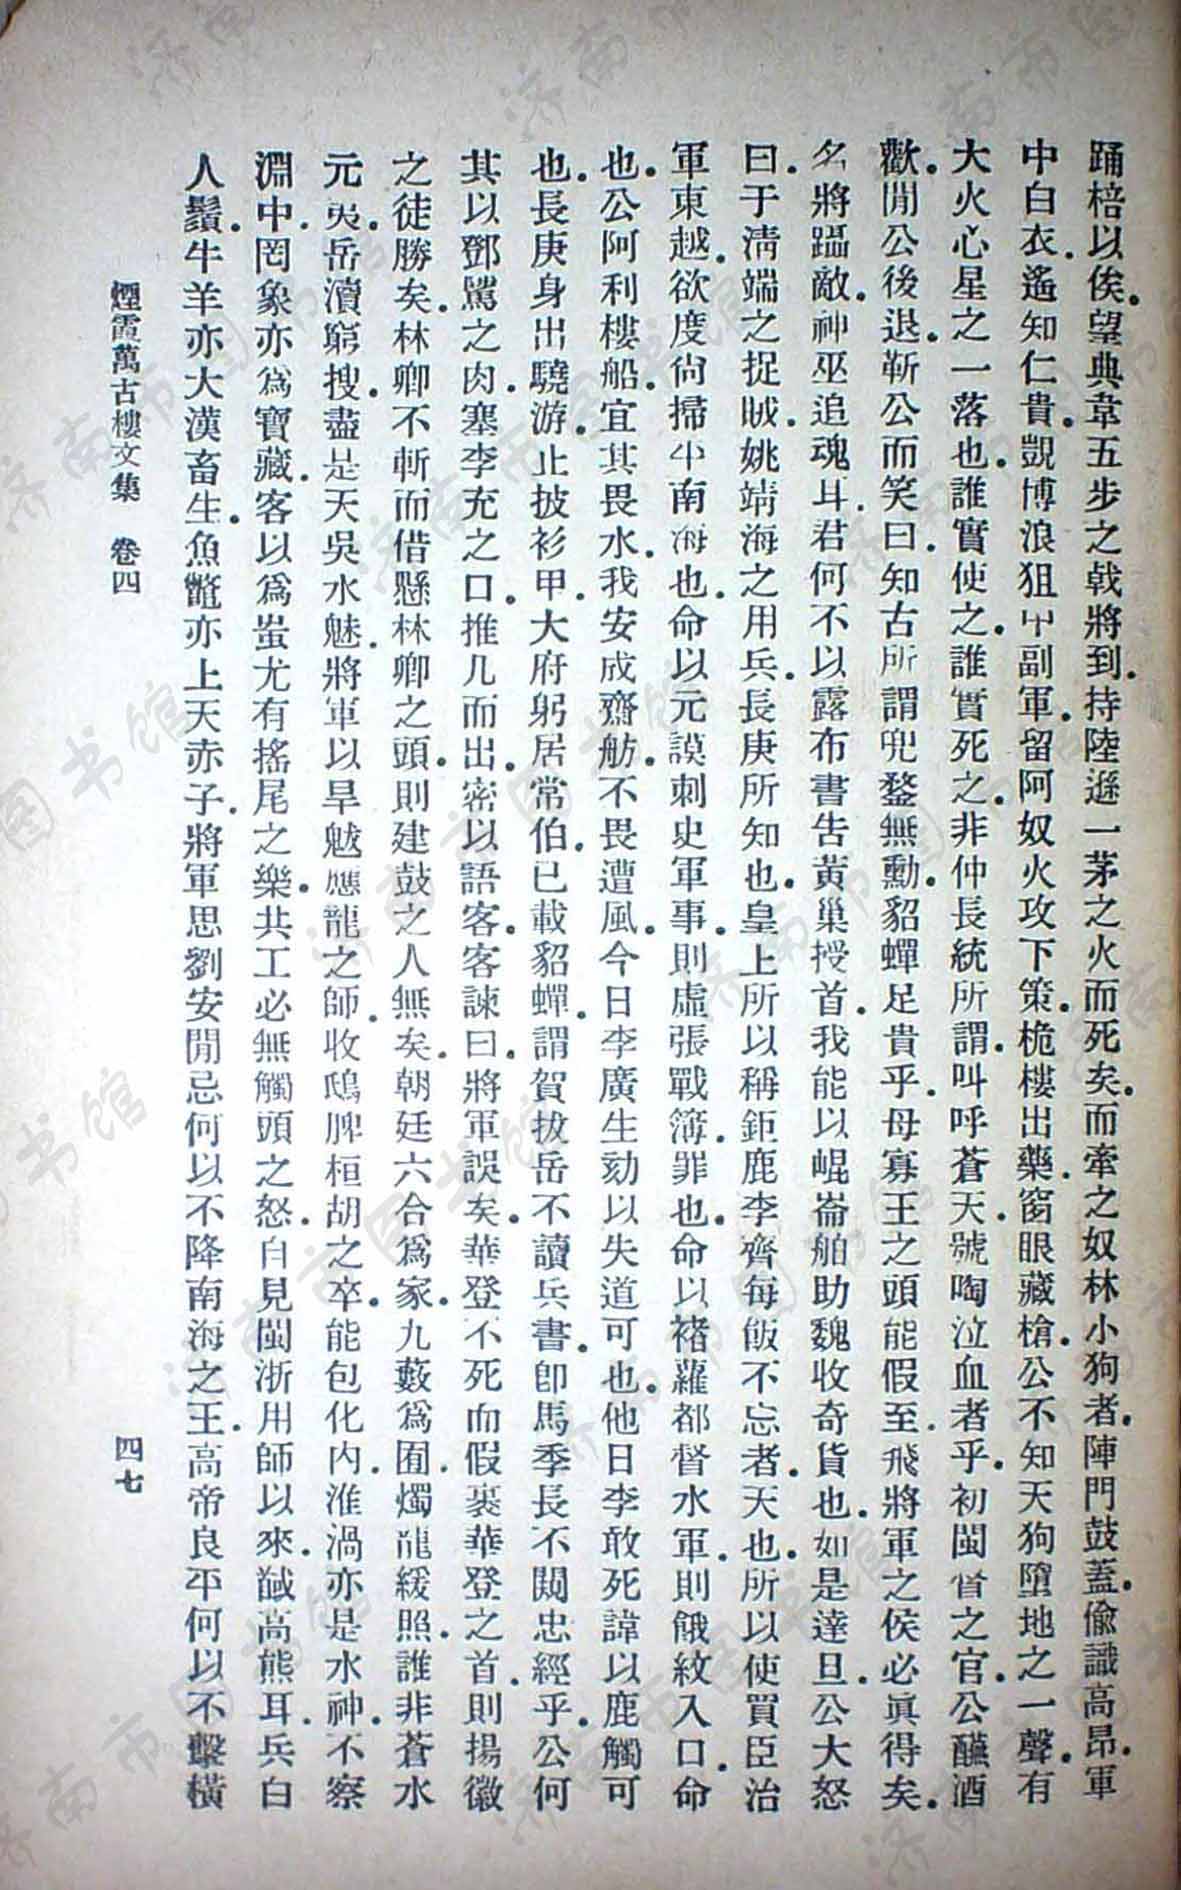 踊棓以俟。望典韋五步之戟將到。持陸遜一茅之火而死矣。而牽之奴林小狗者。陣門鼓蓋。偷識高昂。軍
中白衣。遙知仁貴。覬博浪狙中副軍。留阿奴火攻下策。桅樓出藥。窗眼藏槍。公不知天狗墮地之一聲。有
大火心星之一落也。誰實使之。誰實死之。非仲長統所謂。叫呼蒼天。號啕泣血者乎。初閩省之官。公醼酒
歡。閒公後退。靳公而笑曰。知古所謂兜鍪無勳。貂蟬足貴乎。母寡王之頭能假至。飛將軍之侯必眞得矣。
名將躡敵。神巫追魂。斗君何不以露布書告黃巢授首。我能以崐崙舶助魏收奇貨也。如是達旦。公大怒
曰。于淸端之捉賊。姚靖海之用兵。長庚所知也。皇上所以稱鉅鹿李齊每飯不忘者。天也。所以使買臣治
軍東越。欲度尙掃平南海也。命以元謨刺史軍事。則虛張戰簿。罪也。命以褚蘿都督水軍。則餓紋入口。命
也。公阿利樓船。宜其畏水。我安成齋舫。不畏遭風。今日李廣生劾以失道可也。他日李敢死諱以鹿觸可
也。長庚身出驍游。止披衫甲。大府躬居常伯。已載貂蟬。謂賀拔岳不讀兵書。卽馬季長不闕忠經乎。公何
其以鄧騭之肉。塞李充之口。推几而出。密以語客。客諫曰。將軍誤矣。華登不死而假裹華登之首。則揚徽
之徒勝矣。林卿不斬而借懸林卿之頭。則建鼓之人無矣。朝廷六合爲家。九藪爲囿。燭龍緩照。誰非蒼水
元夷。岳瀆窮搜。盡是天吳水魅。將軍以旱魃應龍之師。收鴟脾桓胡之卒。能包化內。淮渦亦是水神。不察
淵中。罔象亦爲寶藏。客以爲蚩尤有搖尾之樂。共工必無觸頭之怒。自見閩浙用師以來。馘高熊耳。兵白
人鬚。牛羊亦大漢畜生。魚鼈亦上天赤子。將軍思劉安閒忌何以不降南海之王。高帝良平何以不擊橫
煙霞萬古樓文集　卷四
四七